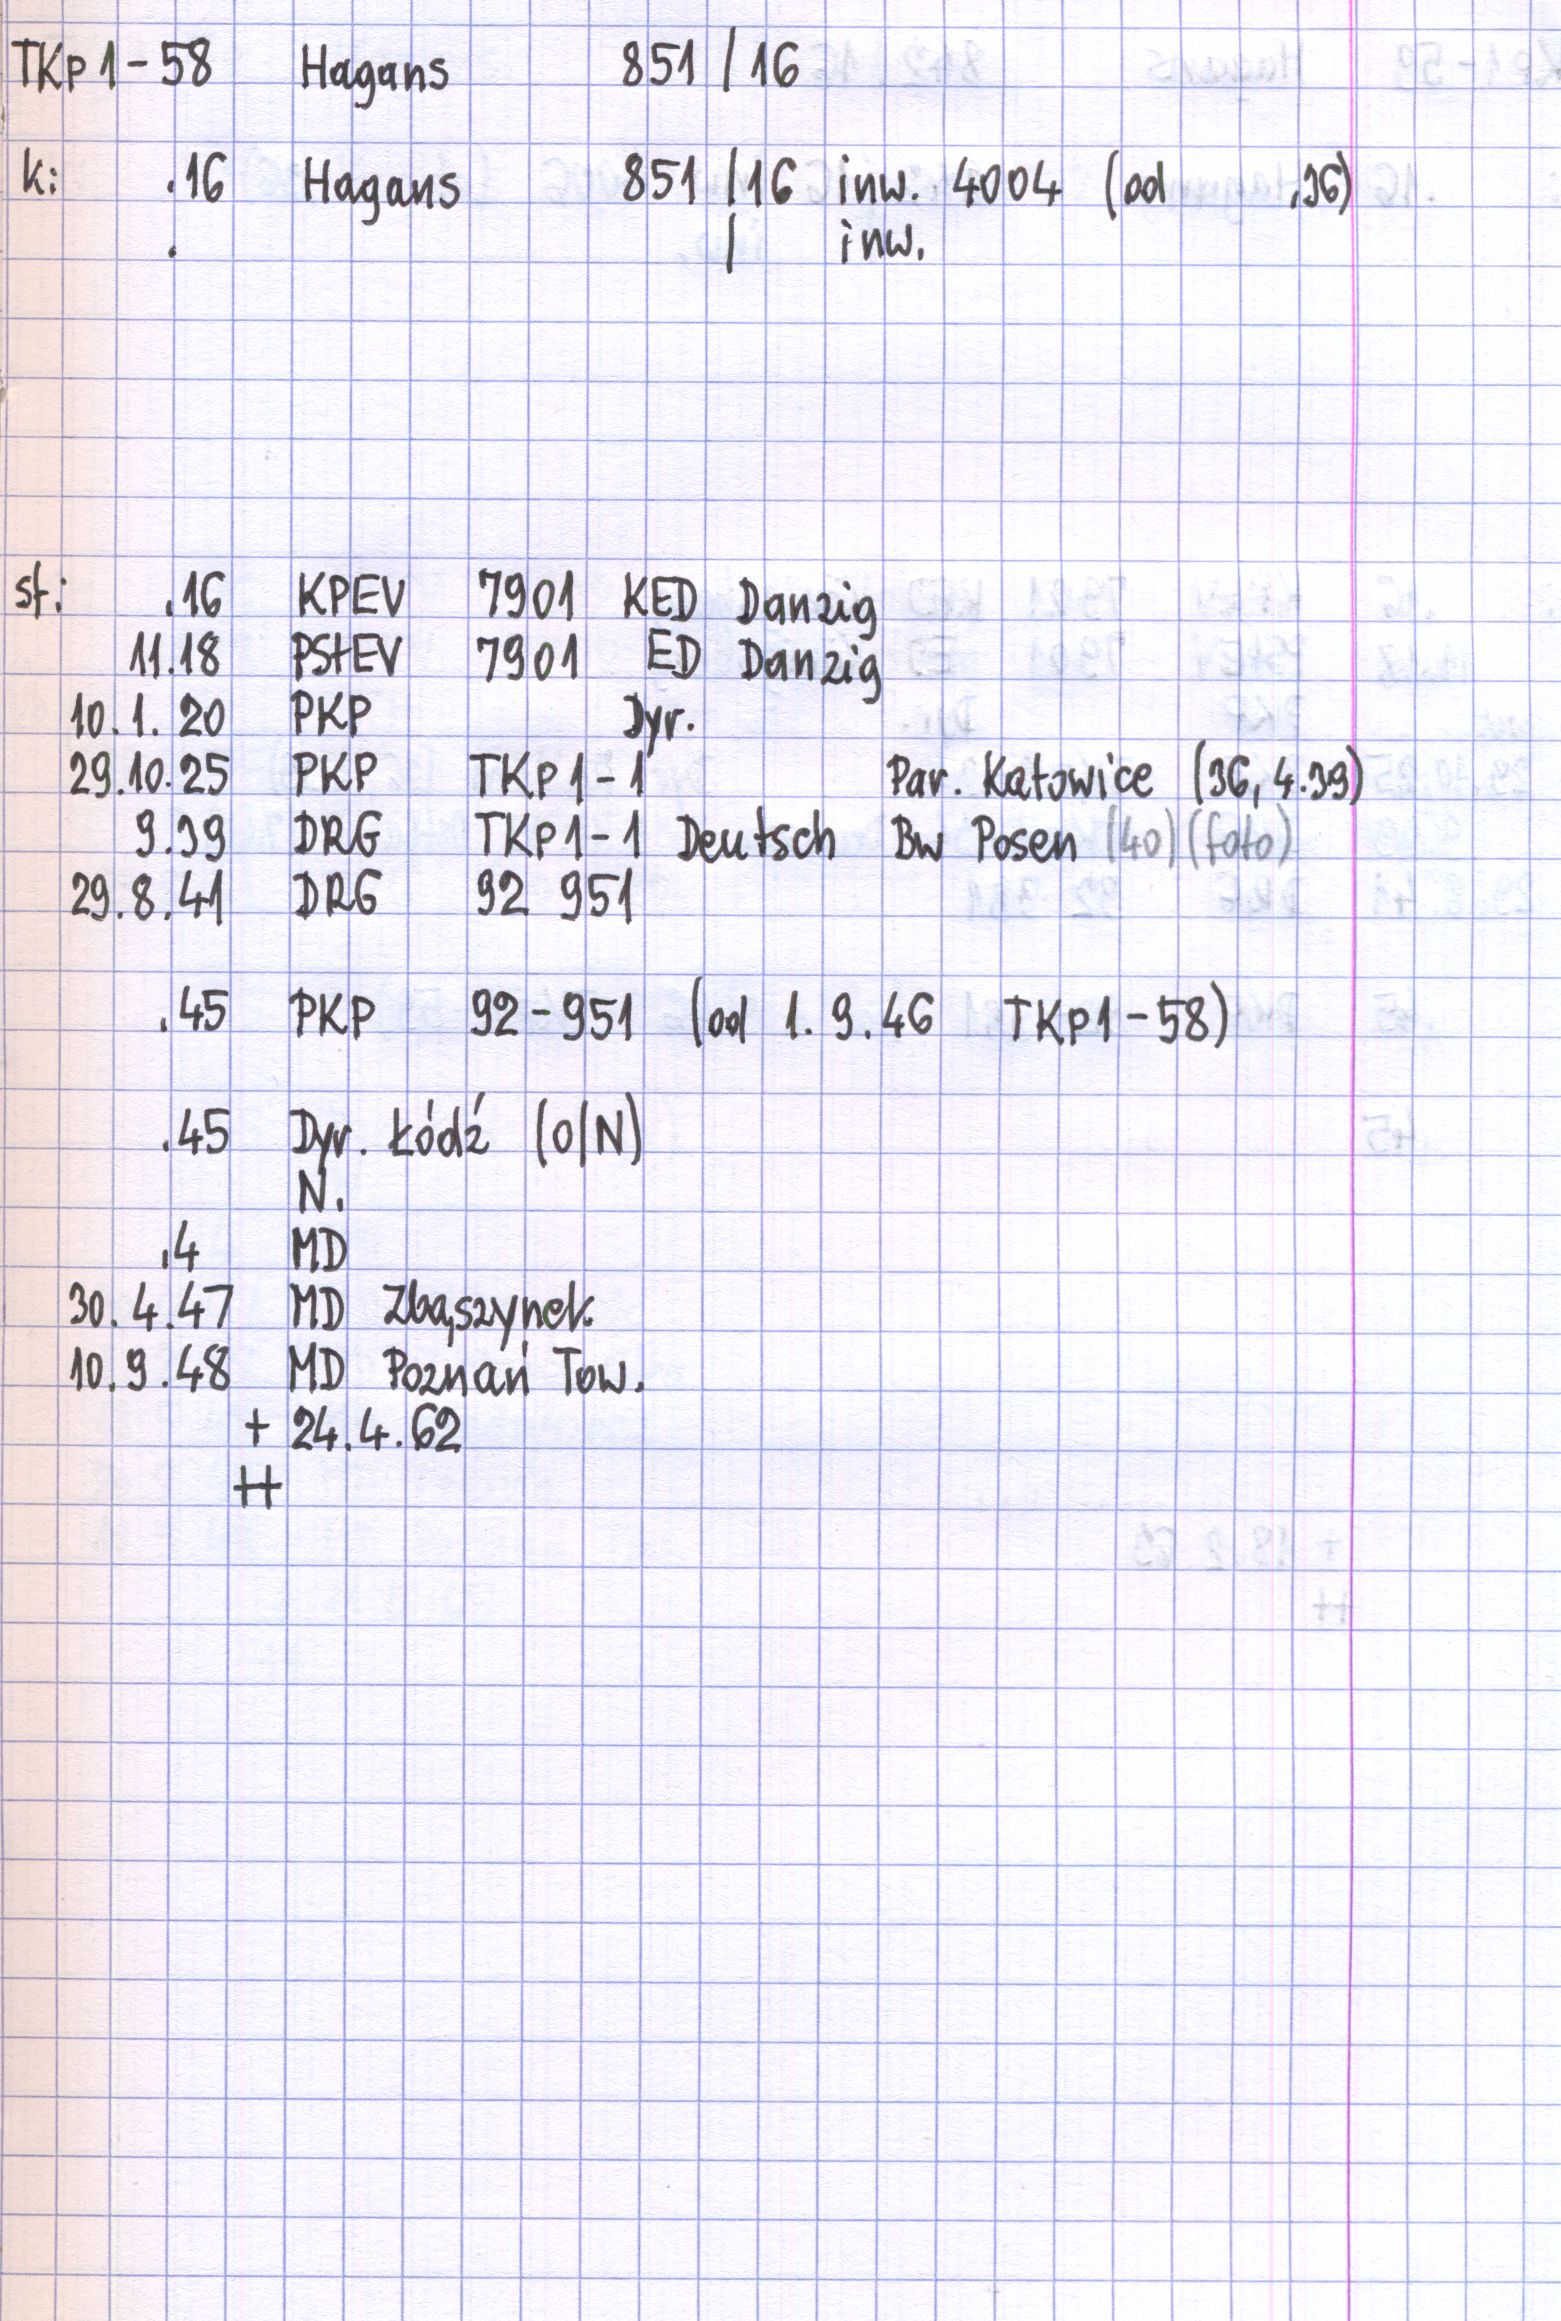 TKp1-58 Hagans 851/16
k: .16 Hagans 851/16 inw. 4004 (od .36)
. / inw.
st: .16 KPEV 7901 KED Danzig
11.18 PStEV 7901 ED Danzig
10.1.20 PKP Dyr.
29.10.25 PKP TKp1-1 Par. Katowice (36, 4.39)
9.39 DRG TKp1-1 Deutsch Bw Posen (40) (foto)
29.8.41 DRG 92 951
.45 PKP 92-951 (od 1.9.46 TKp1-58)
.45 Dyr. Łódź (O/N)
N.
.4 MD
30.4.47 MD Zbąszynek
10.9.48 MD Poznań Tow.
+ 24.4.62
++